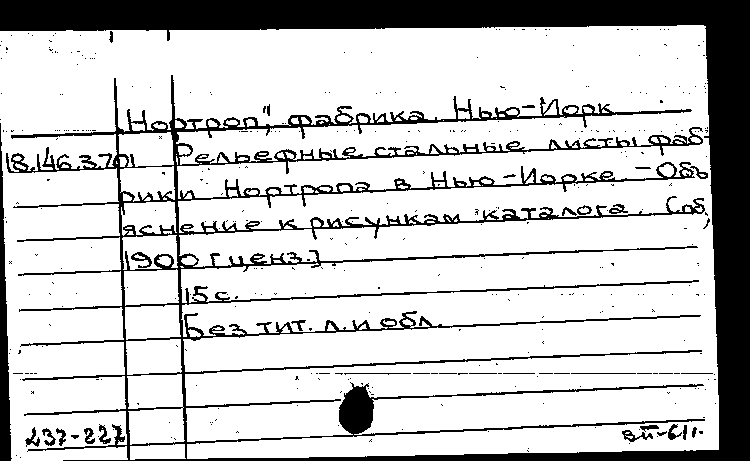 „Нортроп", фабрика. Нью-Йорк
18.146.3.701 Рельефные стальные листы фаб-
рики Нортропа в Нью-Йорке. – Объ
яснение к рисункам каталога. Спб,
1900 [ценз.].
15 с.
Без тит. л. и обл.
237-227